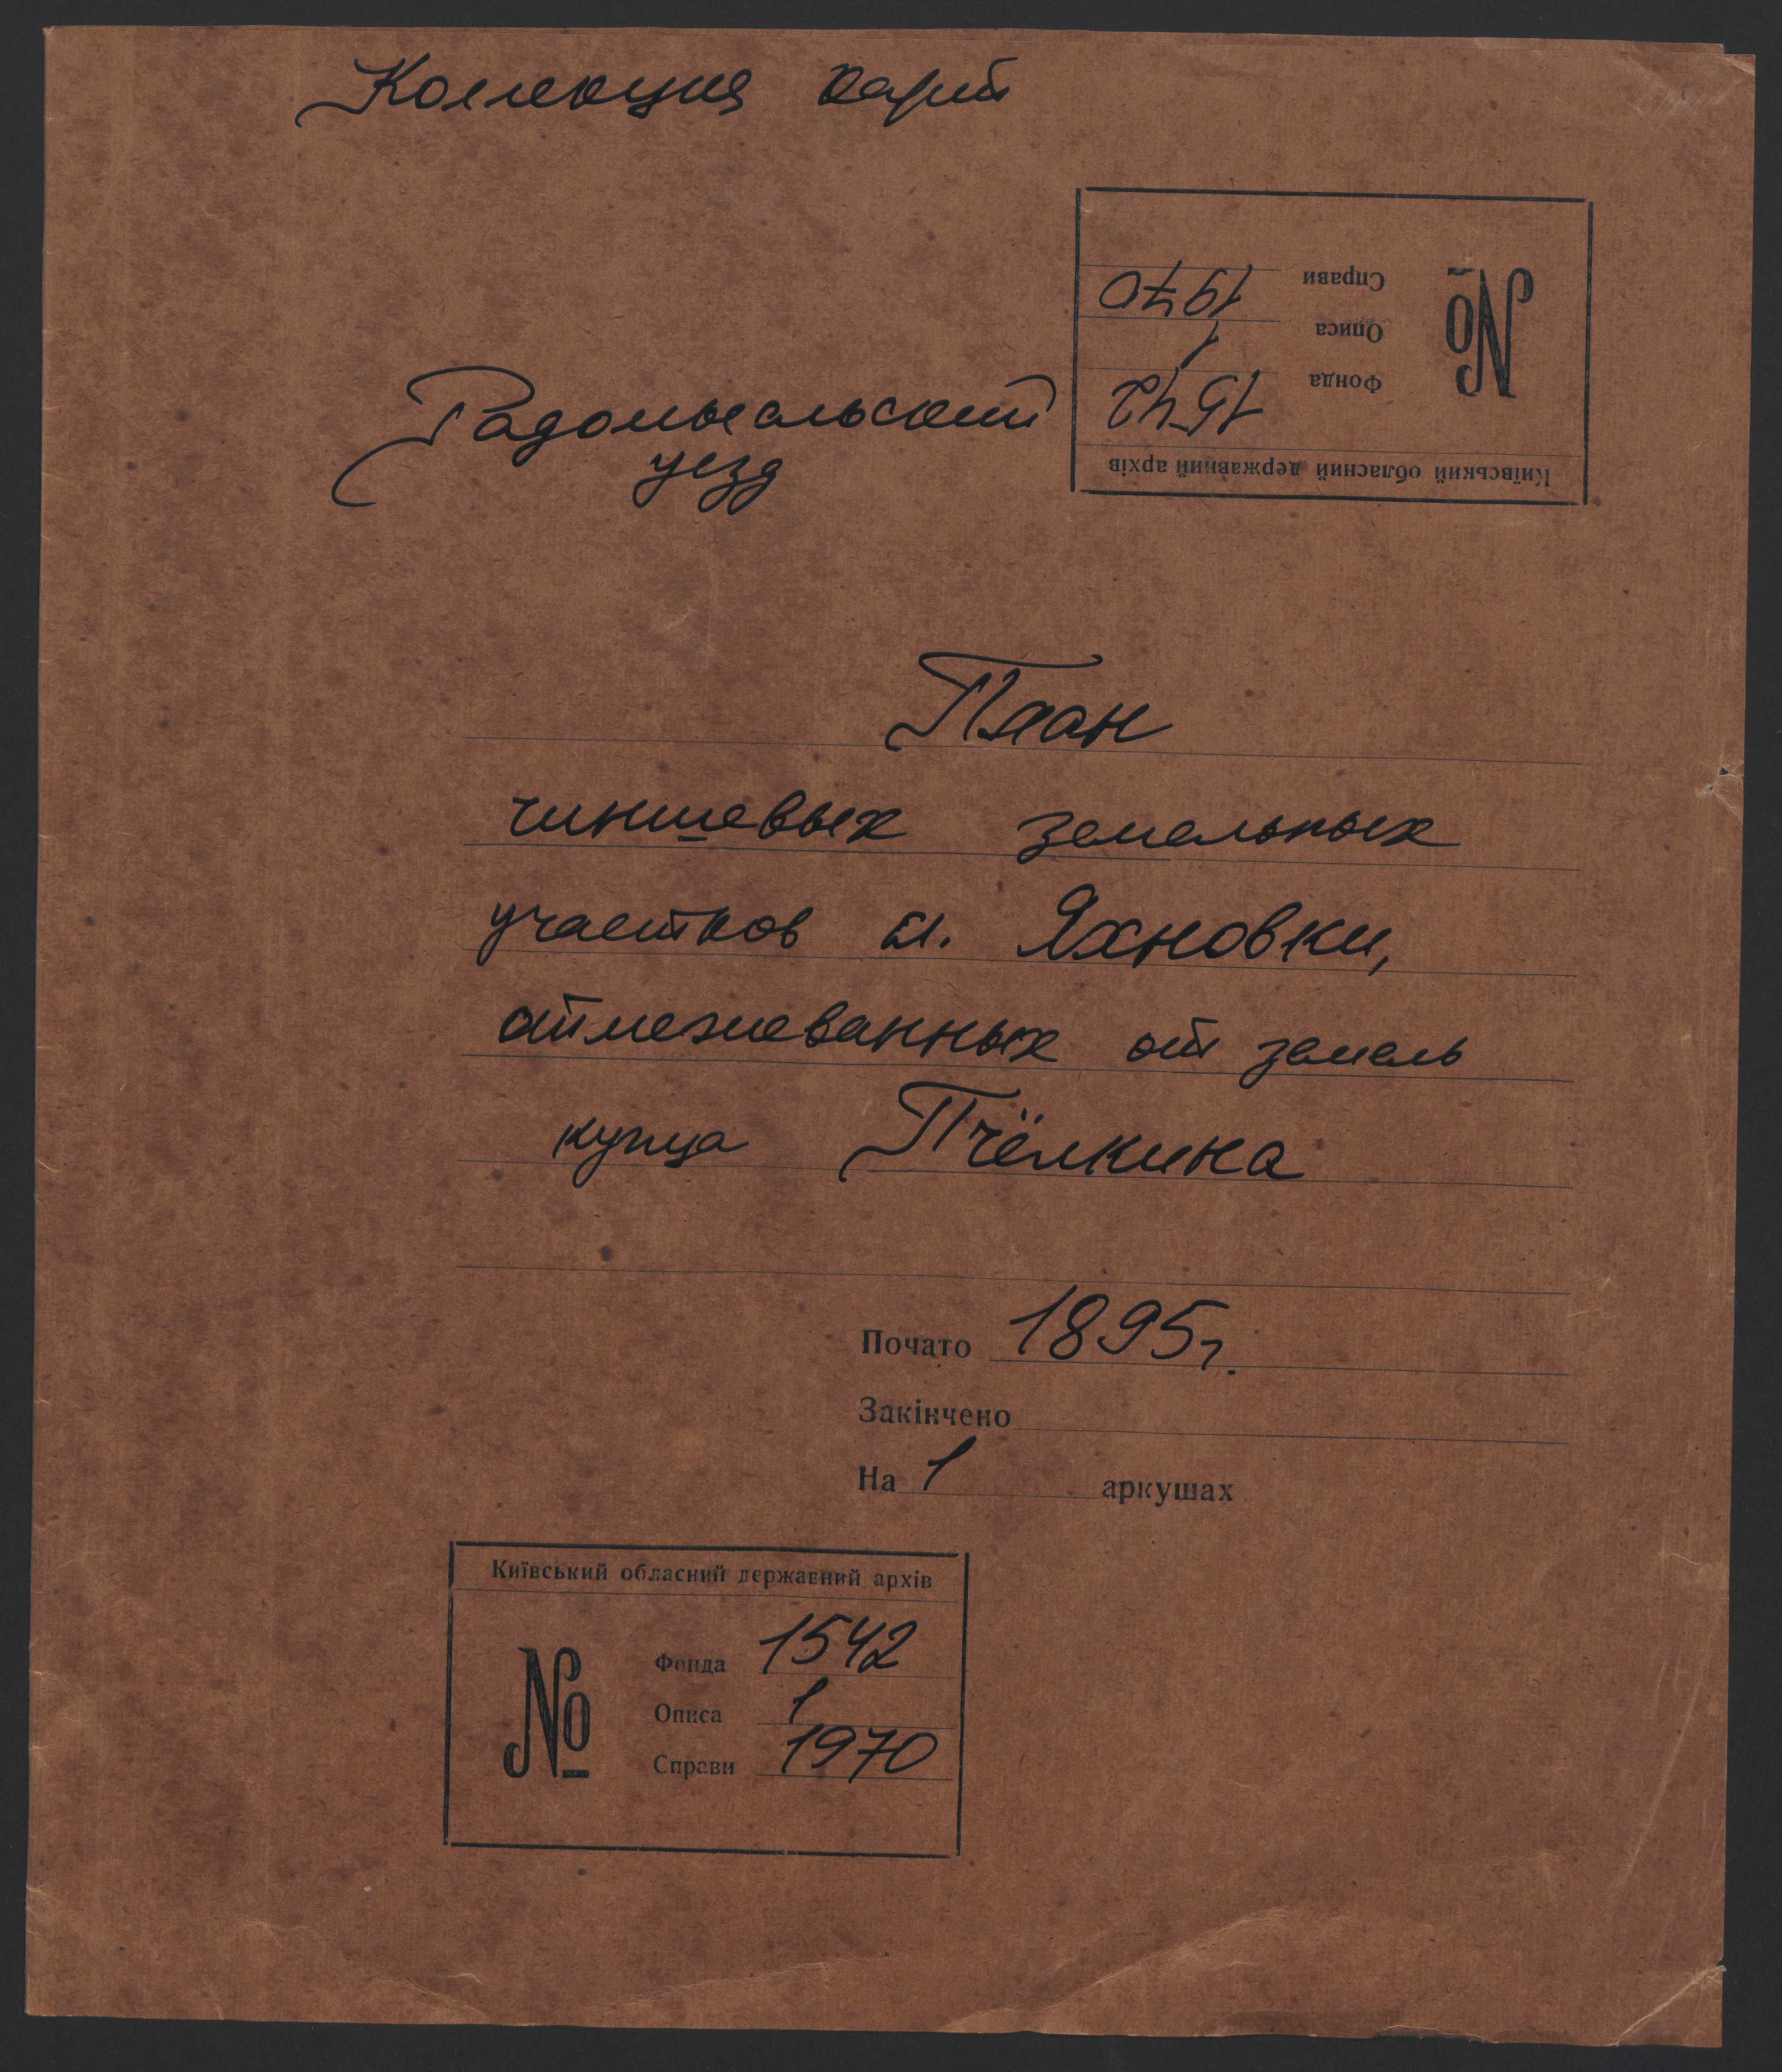 Коллекция карт
Київський обласний державний архів
№
Фонда 1542
Описа 1
Справи 1970
Радомысльский
уезд
План
чиншевых земельных
участков сл. Яхновки,
отмежеванных от земель
купца Пчёлкина
Почато 1895г.
Закінчено
На 1 аркушах
Київський обласний державний архів
№
Фонда 1542
Описа 1
Справи 1970